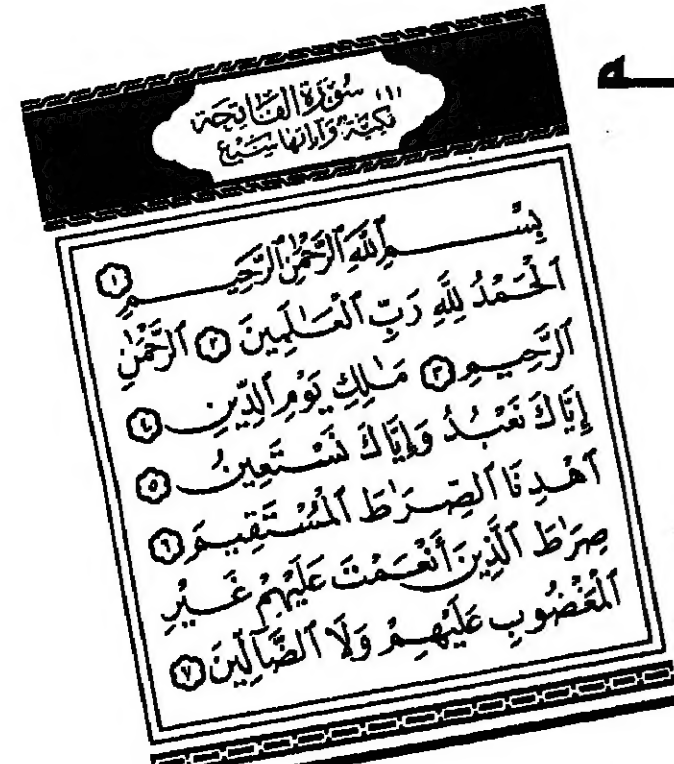 (١) سُورَةُ الفَاتِحَة
مَكِيَّة وَآيَاتُهَا سَبْعٌ
بِسْمِ ٱللَّهِ ٱلرَّحْمَٰنِ ٱلرَّحِيمِ ١
ٱلْحَمْدُ لِلَّهِ رَبِّ ٱلْعَٰلَمِينَ ٢ ٱلرَّحْمَٰنِ
ٱلرَّحِيمِ ٣ مَٰلِكِ يَوْمِ ٱلدِّينِ ٤
إِيَّاكَ نَعْبُدُ وَإِيَّاكَ نَسْتَعِينُ ٥
ٱهْدِنَا ٱلصِّرَٰطَ ٱلْمُسْتَقِيمَ ٦
صِرَٰطَ ٱلَّذِينَ أَنْعَمْتَ عَلَيْهِمْ غَيْرِ
ٱلْمَغْضُوبِ عَلَيْهِمْ وَلَا ٱلضَّآلِّينَ ٧